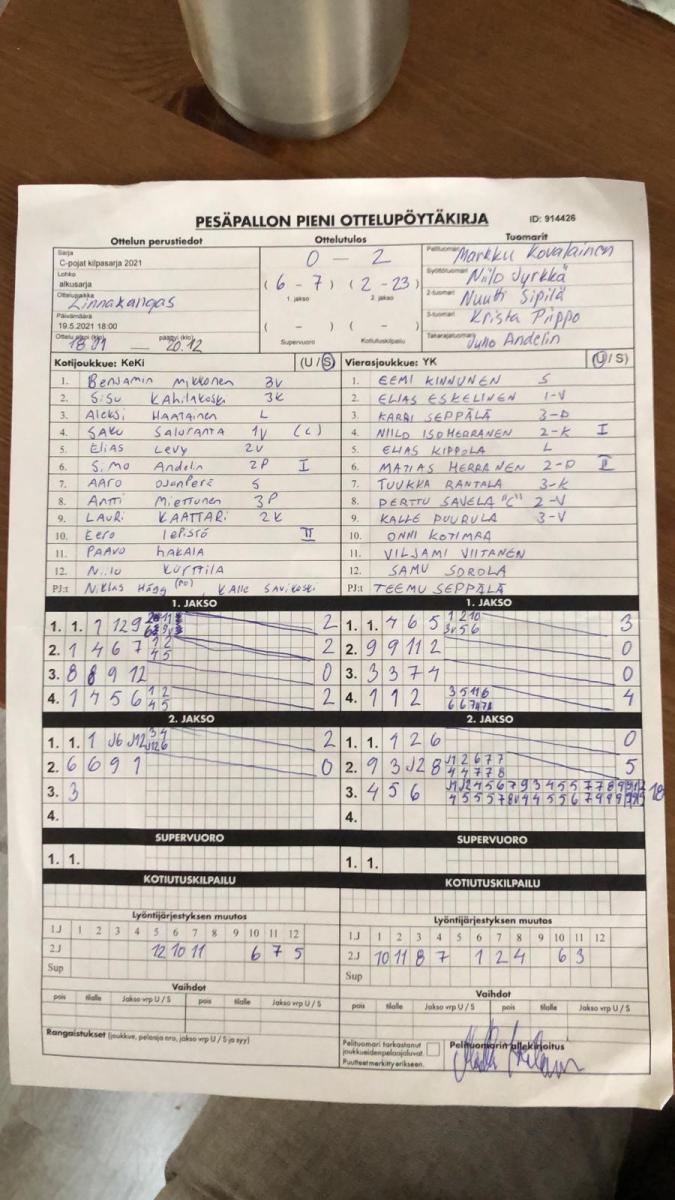 PESÄPALLON PIENI OTTELUPÖYTÄKIRJA ID: 914426
Ottelun perustiedot Ottelutulos Tuomarit
Sarja
C-pojat kilpasarja 2021
0 - 2
Pelituomari Markku Kovalainen
Lohko
alkusarja
(6 - 7) (2 - 23)
1. jakso 2. jakso
Syöttötuomari Niilo Jyrkkä
Ottelupaikka
Linnakangas
2-tuomari Nuutti Sipilä
Päivämäärä
19.5.2021 18:00
( - ) ( - )
Supervuoro Kotiutuskilpailu
3-tuomari Krista Piippo
Ottelu alkoi (klo) 18.01 päättyi (klo) 20.12
Takarajatuomari Juho Andelin
Kotijoukkue: KeKi (U/S) Vierasjoukkue: YK (U/S)
1. Benjamin Mikkonen 3V
2. Sisu Kahilakoski 3K
3. Aleksi Haatainen L
4. Saku Saluranta 1V (C)
5. Elias Levy 2V
6. Simo Andelin 2P I
7. Aaro Ojanperä S
8. Antti Miettunen 3P
9. Lauri Kaattari 2K
10. Eero Lepistö II
11. Paavo Hakala
12. Niilo Kurttila
PJ:t Niklas Hägg (PV) Kalle Savikoski
1. EEMI KINNUNEN S
2. ELIAS ESKELINEN 1-V
3. KARRI SEPPÄLÄ 3-D
4. NIILO ISOHERRANEN 2-K I
5. ELIAS KIPPOLA L
6. MATIAS HERRANEN 2-D II
7. TUUKKA RANTALA 3-K
8. PERTTU SAVELA "C" 2-V
9. KALLE PUURULA 3-V
10. ONNI KOTIMAA
11. VILJAMI VIITANEN
12. SAMU SOROLA
PJ:t TEEMU SEPPÄLÄ
1. JAKSO 1. JAKSO
1. 1. 1 12 9 2
2. 1 4 6 7 1 2 4 5 2
3. 8 8 9 12 0
4. 1 4 5 6 1 2 4 5 2
1. 1. 4 6 5 1 2 10 3
2. 9 9 11 2 0
3. 3 3 7 4 0
4. 1 1 2 4
2. JAKSO 2. JAKSO
1. 1. 1 J6 J12 2
2. 6 6 9 1 0
3. 3
4.
1. 1. 1 2 6 0
2. 9 3 J2 8 5
3. 4 5 6 18
4.
SUPERVUORO SUPERVUORO
1. 1. 1. 1.
KOTIUTUSKILPAILU KOTIUTUSKILPAILU
Lyöntijärjestyksen muutos Lyöntijärjestyksen muutos
1J 1 2 3 4 5 6 7 8 9 10 11 12
2J 12 10 11 6 7 5
Sup
1J 1 2 3 4 5 6 7 8 9 10 11 12
2J 10 11 8 7 1 2 4 6 3
Sup
Vaihdot Vaihdot
pois tilalle Jakso vrp U / S pois tilalle Jakso vrp U / S
pois tilalle Jakso vrp U / S pois tilalle Jakso vrp U / S
Rangaistukset (joukkue, pelaaja nro, jakso vrp U / S ja syy)
Pelituomari tarkastanut
joukkueiden pelaajaluvat.
Puutteet merkitty erikseen.
Pelituomarin allekirjoitus